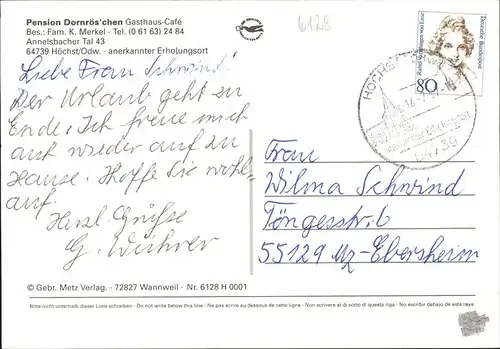 Pension Dornrös'chen Gasthaus-Café
Bes.: Fam. K. Merkel - Tel. (0 61 63) 24 84
Annelsbacher Tal 43
64739 Höchst/Odw. - anerkannter Erholungsort
6128
Deutsche Bundespost
80
HÖCHST
64739
Liebe Frau Schwind!
Der Urlaub geht zu
Ende, Ich freue mich
auf wieder auf zu
Hause. Hoffe Sie wohl-
auf.
Herzl. Grüße
G. 
Frau
Wilma Schwind
Töngesstr. 6
55129 Mz-Ebersheim
© Gebr. Metz Verlag - 72827 Wannweil - Nr. 6128 H 0001
Bitte nicht unterhalb dieser Linie schreiben - Do not write below this line - Ne pas écrire au dessous de cette ligne - Non scrivere al di sotto di questa riga - No escribir debajo de esta raya